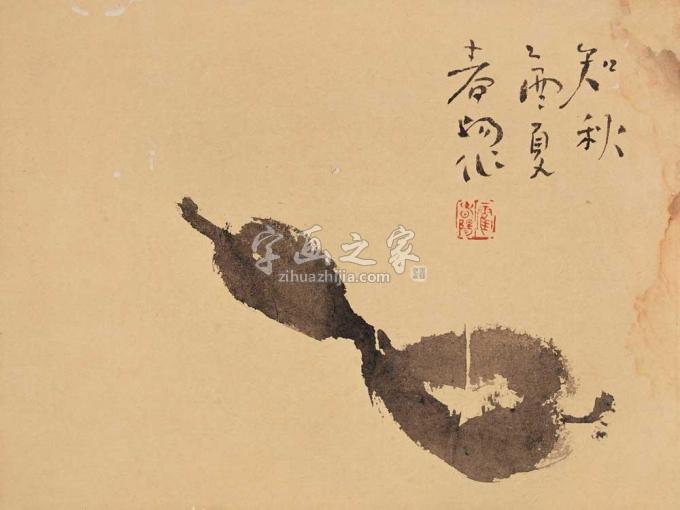 知秋
乙酉夏
春 作
字画之家
zihuazhijia.com